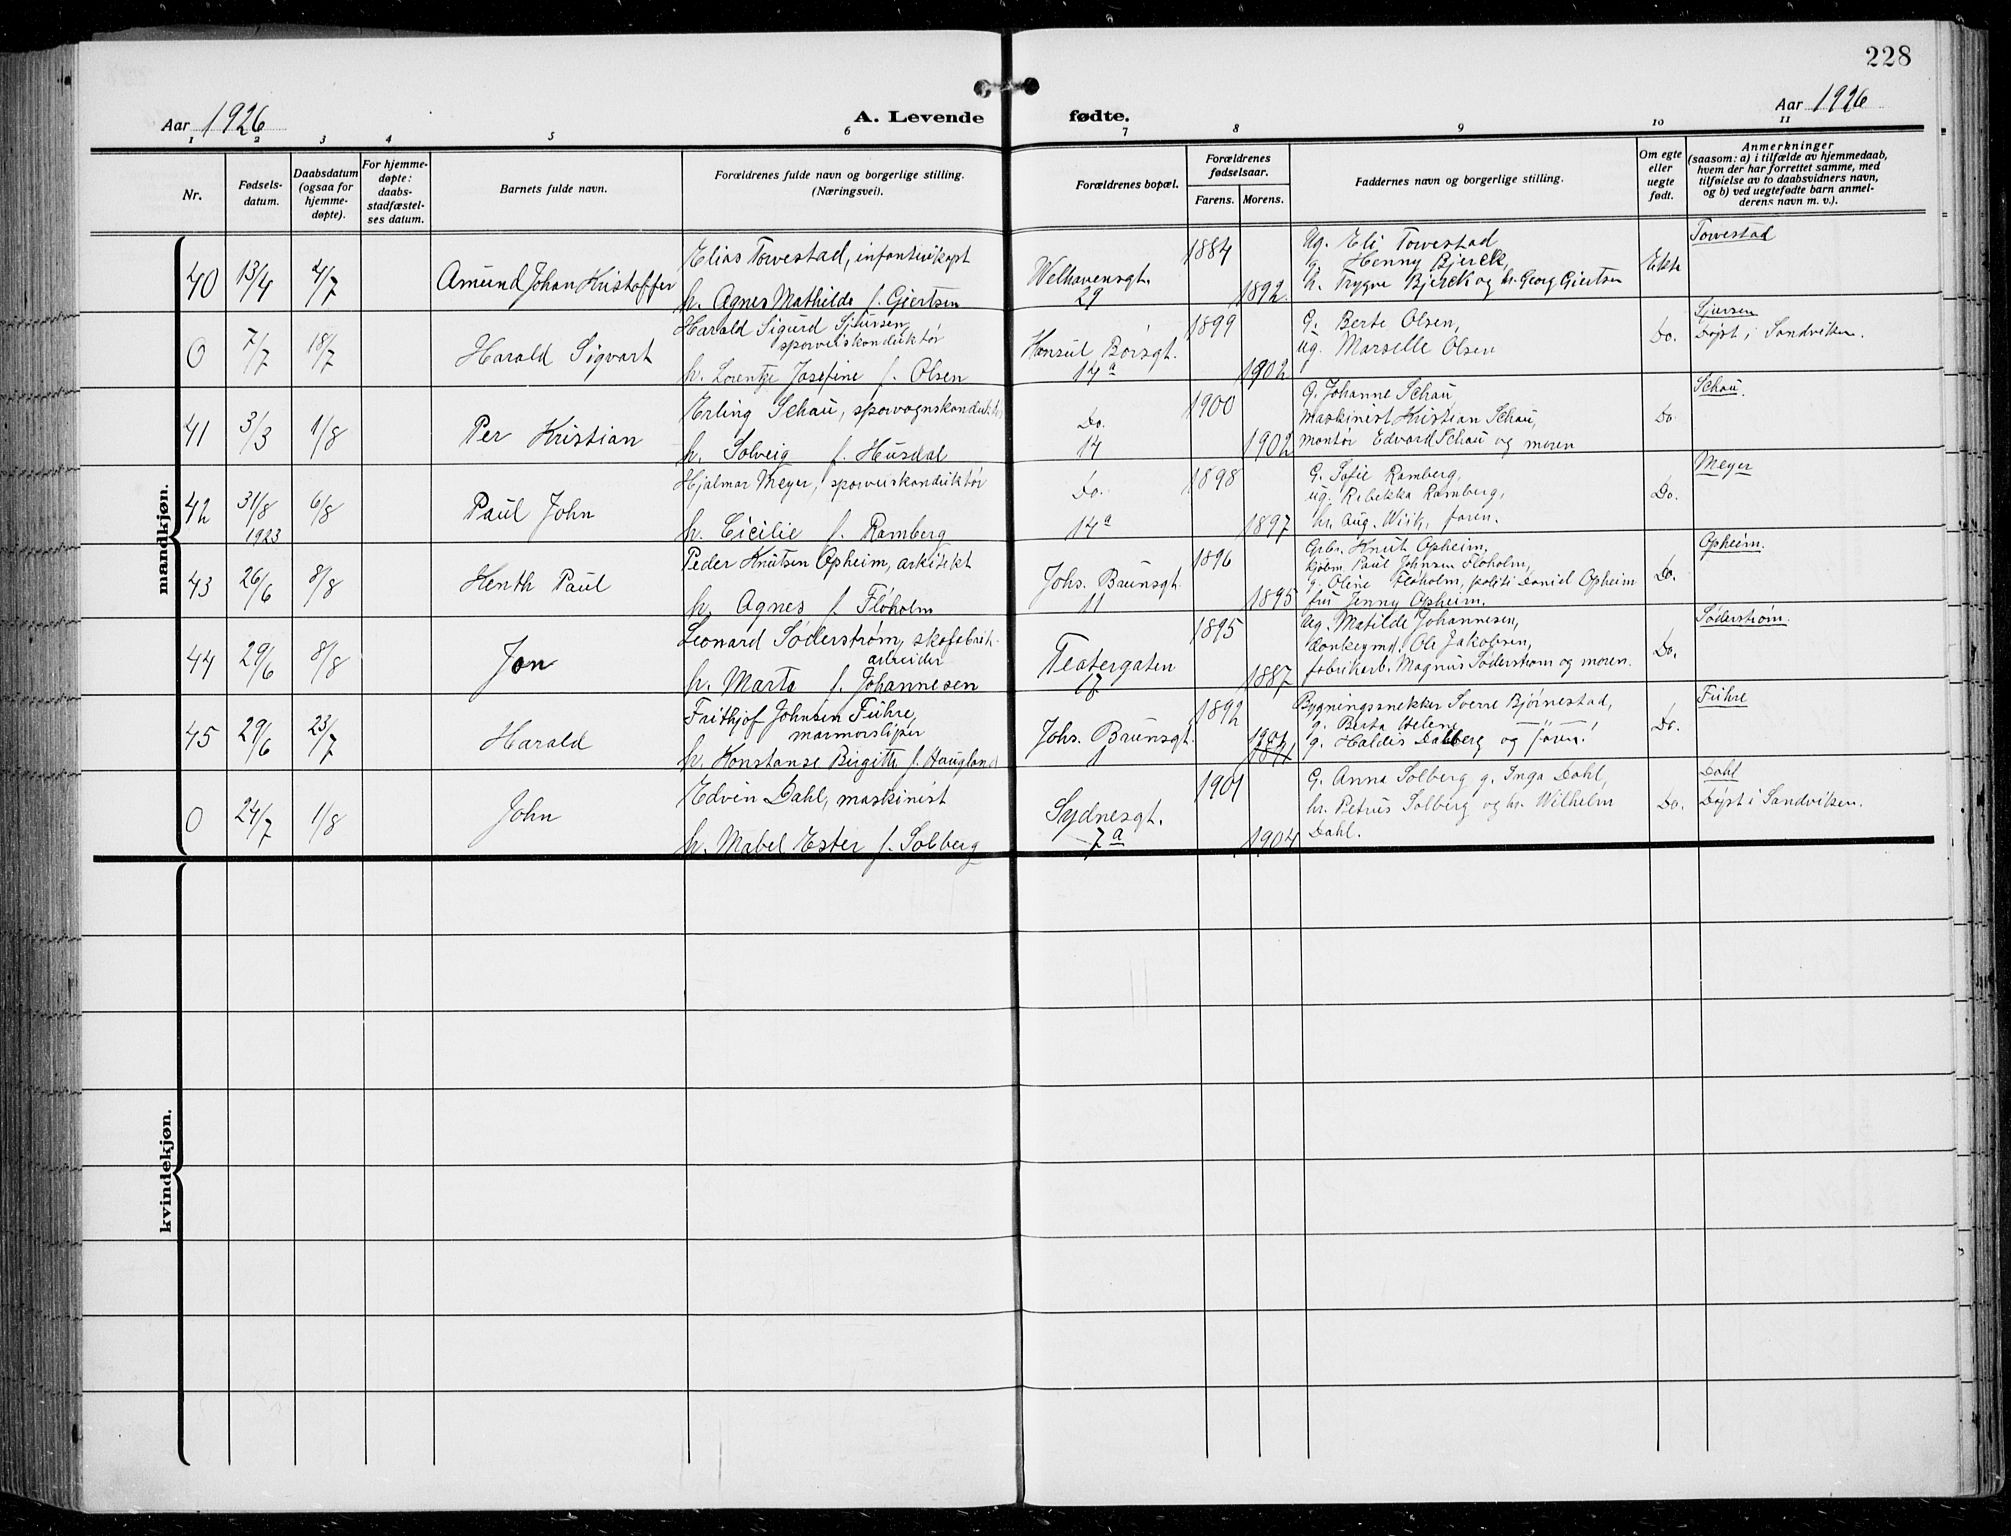 228
Aar 1926 A. Levende fødte. Aar 1926
1 2 3 4 5 6 7 8 9 10 11
Nr.
Fødsels-
datum.
Daabsdatum
(ogsaa for
hjemme-
døpte).
For hjemme-
døpte:
daabs-
stadfæstel-
ses datum.
Barnets fulde navn.
Forældrenes fulde navn og borgerlige stilling.
(Næringsvei).
Forældrenes bopæl.
Forældrenes
fødselsaar.
Farens. Morens.
Faddernes navn og borgerlige stilling.
Om egte
eller
uegte
født.
Anmerkninger
(saasom: a) i tilfælde av hjemmedaab,
hvem der har forrettet samme, med
tilføielse av to daabsvidners navn,
og b) ved uegtefødte barn anmel-
derens navn m. v.).
mandkjøn.
40 13/4 4/7 Amund Johan Kristoffer
Elias Towestad, infanterikapt
h. Agnes Mathilde f. Giertsen
Welhavensgt.
29
1884
1892.
Ug. Eli Towestad
g. Henny Bjerck,
h. Trygve Bjerck og hr. Georg Giertsen
Ekte
Towestad
0 7/7 18/7 Harald Sigvart
Harald Sigurd Sjursen,
sporveiskonduktør
h. Lorentze Josefine f. Olsen
Konsul Børsgt.
14a
1899
1902
G. Berte Olsen,
ug. Marselle Olsen
Do.
Sjursen
Døpt i Sandviken.
41 3/3 1/8 Per Kristian
Erling Schau, sporvognskondukt
h. Solveig f. Husdal
Do.
14
1900
1902
G. Johanne Schau,
maskinist Kristian Schau,
montør Edvard Schau og moren
Do.
Schau.
42 31/8 1923 6/8 Paul John
Hjalmar Meyer, sporveiskonduktør
h. Cicilie f. Ramberg
Do.
14a
1898
1897
G. Sofie Ramberg,
ug. Rebekka Ramberg,
hr. Aug. Wiik, faren.
Do.
Meyer
43 26/6 8/8 Henth Paul
Peder Knutsen Opheim, arkitekt
h. Agnes f. Fløholm
Johs. Brunsgt
11
1896
1895
Grbr. Knut Opheim,
kjøbm. Paul Johnsen Fløholm,
g. Oline Fløholm, politi Daniel Opheim
fru Jenny Opheim.
Do.
Opheim.
44 29/6 8/8 Jon
Leonard Söderstrøm, skofabrik-
arbeider
h. Marta f. Johannesen
Teatergaten
17
1895
1887
Ug. Matilde Johannesen,
donkeymd. Ole Jakobsen,
fabrikarb. Magnus Söderstrøm og moren.
Do.
Söderstrøm.
45 29/6 23/7 Harald
Frithjof Johnsen Fuhre,
marmorsliper
h. Konstanse Birgitte f. Haugland
Johs. Brunsgt.
1
1892
1901
1891
Bygningssnekker Sverre Bjørnestad,
g. Berta Helene
g. Haldis Dalberg og faren.
Do.
Fuhre
0 24/7 1/8 John
Edvin Dahl, maskinist
h. Mabel Ester f. Solberg
Sydnesgt.
7a
1901
1904
G. Anna Solberg g. Inga Dahl,
hr. Petrus Solberg og hr. Wilhelm
Dahl.
Do.
Dahl
Døpt i Sandviken.
kvindekjøn.